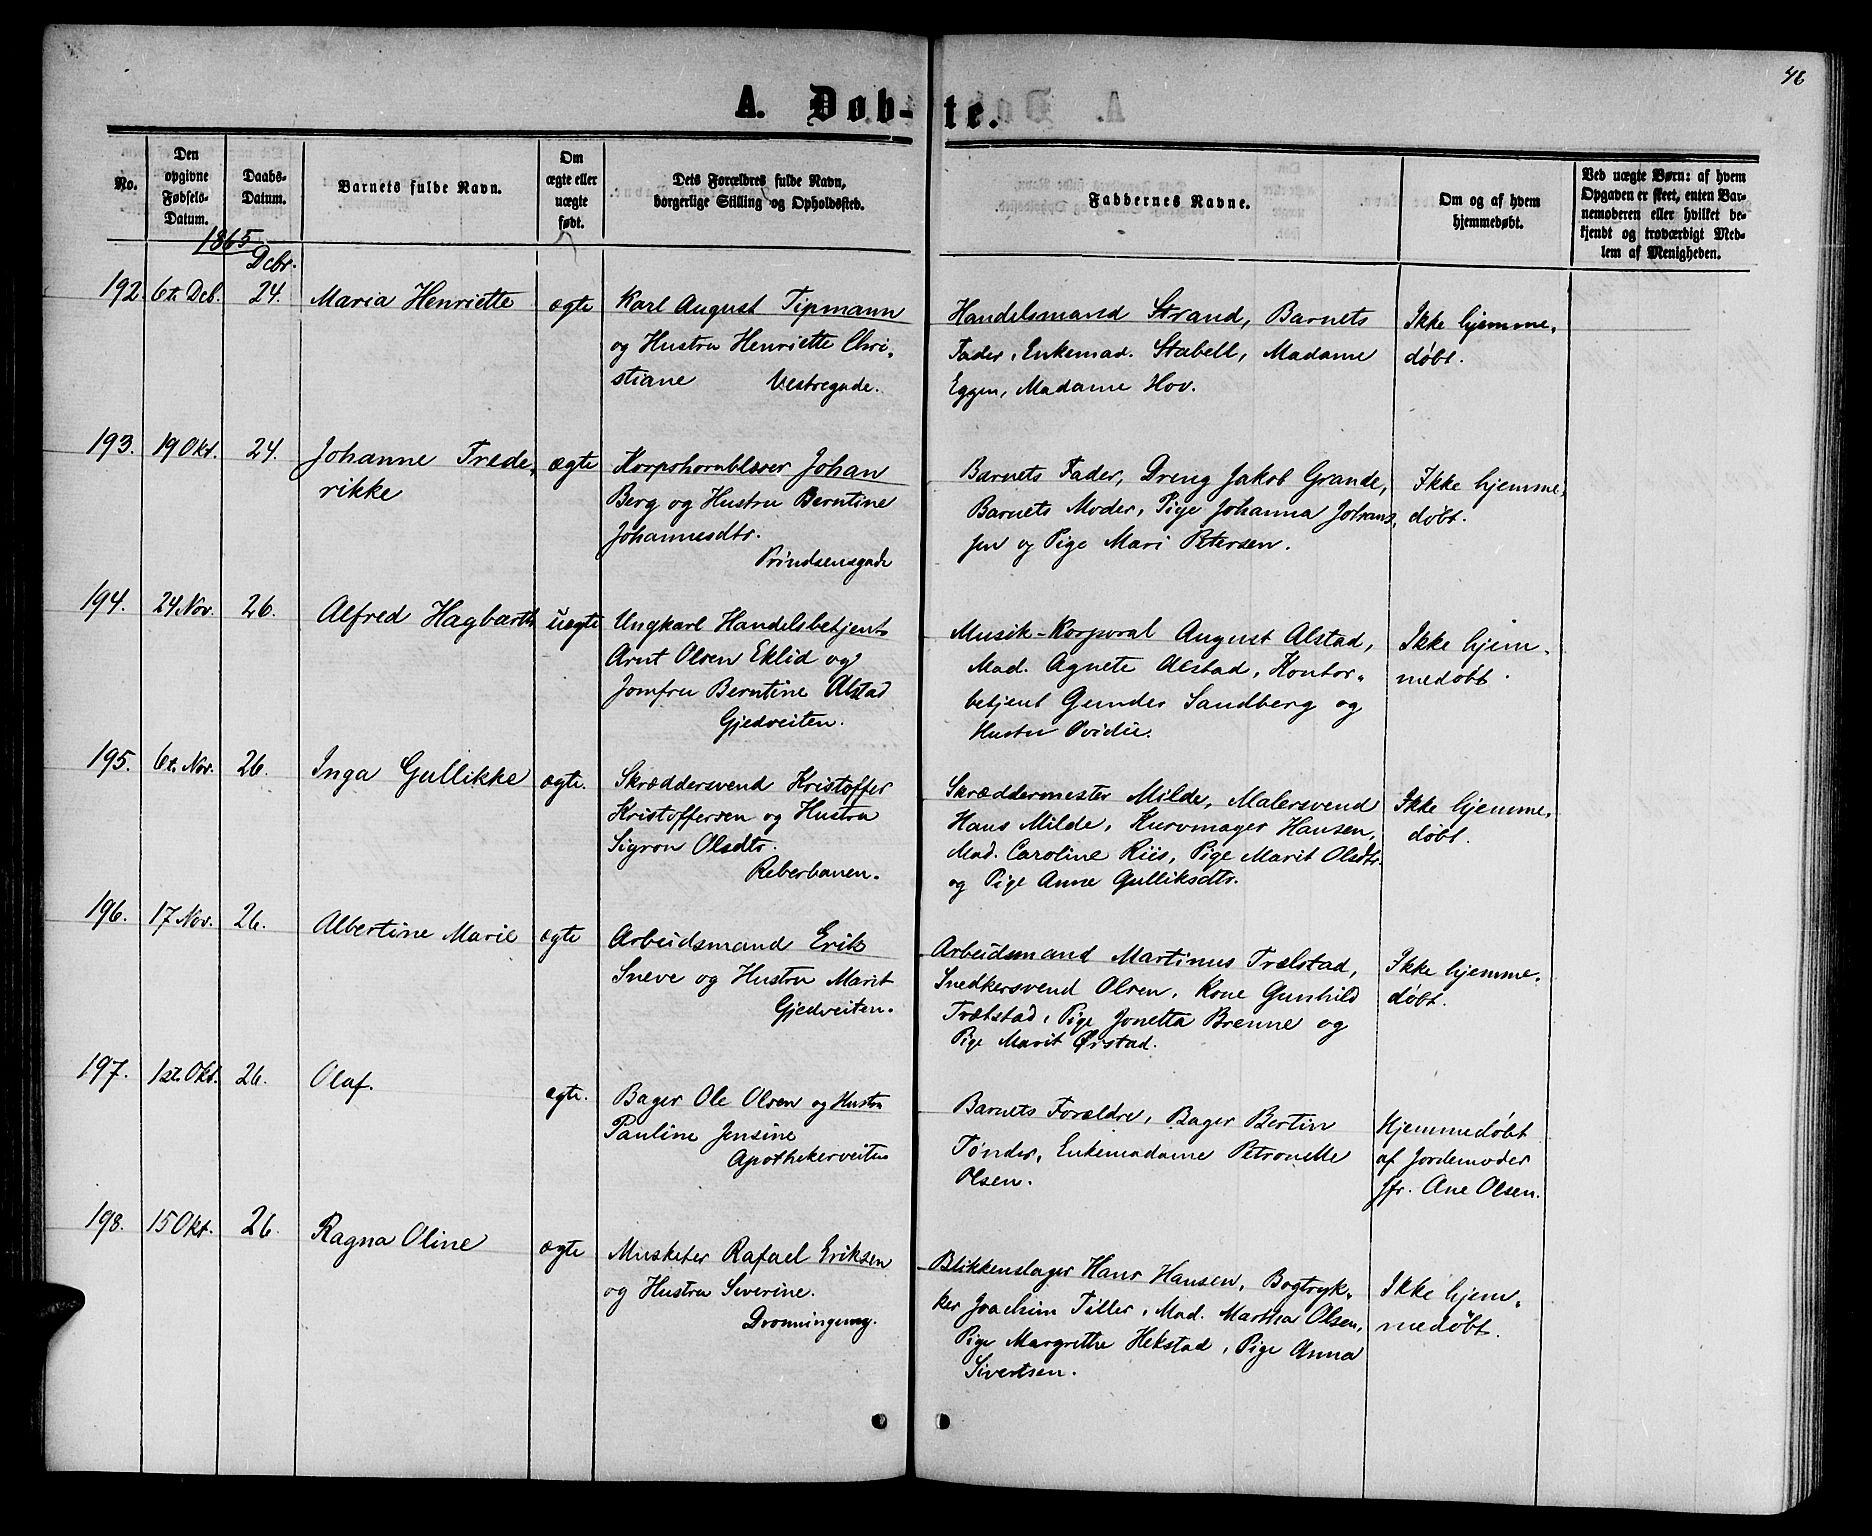 46
A. Døb-te.
No.
Den opgivne Fødsels-Datum.
Daabs-Datum.
Barnets fulde Navn.
Om ægte eller uægte født.
Dets Forældres fulde Navn, borgerlige Stilling og Opholdssted.
Faddernes Navne.
Om og af hvem hjemmedøbt.
Ved uægte Børn: af hvem Opgaven er skeet, enten Barnemoderen eller hvilket bekjendt og troværdigt Medlem af Menigheden.
1865
Dcbr.
192. 6t. Dcb. 24. Maria Henriette ægte
Karl August Tipmann
og Hustru Henriette Chri-
stiane Vestregade.
Handelsmand Strand, Barnets
Fader, Enkemad. Stabell, Madame
Eggen, Madame Hov.
Ikke hjemme-
døbt.
193. 19 Okt. 24. Johanne Frede-
rikke
ægte
Korpshornblæser Johan
Berg og Hustru Berntine
Johannesdtr.
Prindsensgade
Barnets Fader, Dreng Jakob Grande,
Barnets Moder, Pige Johanna Johans-
sen og Pige Mari Petersen.
Ikke hjemme-
døbt.
194. 24 Nov. 26. Alfred Hagbarth uægte
Ungkarl Handelsbetjent
Arnt Olsen Eklid og
Jomfru Berntine Alstad
Gjedveiten.
Musik-Korporal August Alstad,
Mad. Agnete Alstad, Kontor-
betjent Gunder Sandberg og
Hustru Ovidie.
Ikke hjem-
medøbt.
195. 6t. Nov. 26. Inga Gullikke ægte.
Skræddersvend Kristoffer
Kristoffersen og Hustru
Sigron Olsdtr.
Reberbanen.
Skræddermester Milde, Malersvend
Hans Milde, Kurvmager Hansen,
Mad. Caroline Riis, Pige Marit Olsdtr.
og Pige Anne Gulliksdtr.
Ikke hjemme-
døbt.
196. 17 Nov. 26. Albertine Marie ægte
Arbeidsmand Erik
Sneve og Hustru Marit
Gjedveiten.
Arbeidsmand Martinus Trælstad,
Snedkersvend Olsen, Kone Gunhild
Trætstad, Pige Jonetta Brenne og
Pige Marit Ørstad.
Ikke hjemme-
døbt.
197. 1st. Okt. 26. Olaf. ægte.
Bager Ole Olsen og Hustru
Pauline Jensine
Apothekerveiten
Barnets Forældre, Bager Bertin
Tønder, Enkemadame Petronelle
Olsen.
Hjemmedøbt
af Jordemoder
Jfr. Ane Olsen.
198. 15 Okt. 26. Ragna Oline ægte
Musketer Rafael Eriksen
og Hustru Severine.
Dronningensg.
Blikkenslager Hans Hansen, Bogtryk-
ker Joachim Tiller, Mad. Martha Olsen,
Pige Margrethe Hekstad, Pige Anna
Sivertsen.
Ikke hjem-
medøbt.